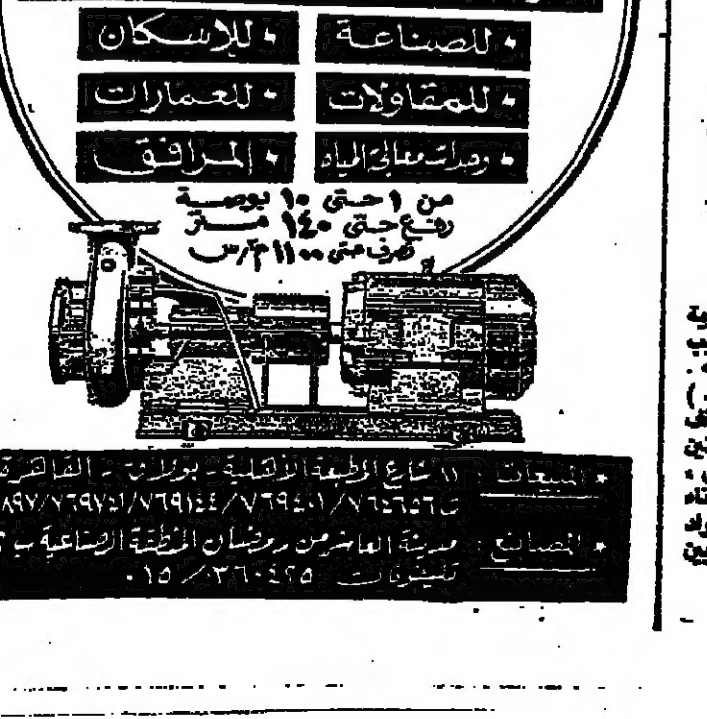 • للصناعة • للإسكان
• للمقاولات • للعمارات
• وحدات معالجة المياه • المرافق
من ١ حتى ١٠ بوصة
رفع حتى ١٤٠ متر
تصرف حتى ١١٠٠ م٣/س
• المبيعات : ١١ شارع المطبعة الأهلية - بولاق - القاهرة
ت ٧٦٤٦٥٦/٧٦٩٤٠١/٧٦٩١٤٤/٧٦٩٧٤١/
• المصانع : مدينة العاشر من رمضان المنطقة الصناعية ب
تليفونات ٣٦٠٤٢٥/٠١٥